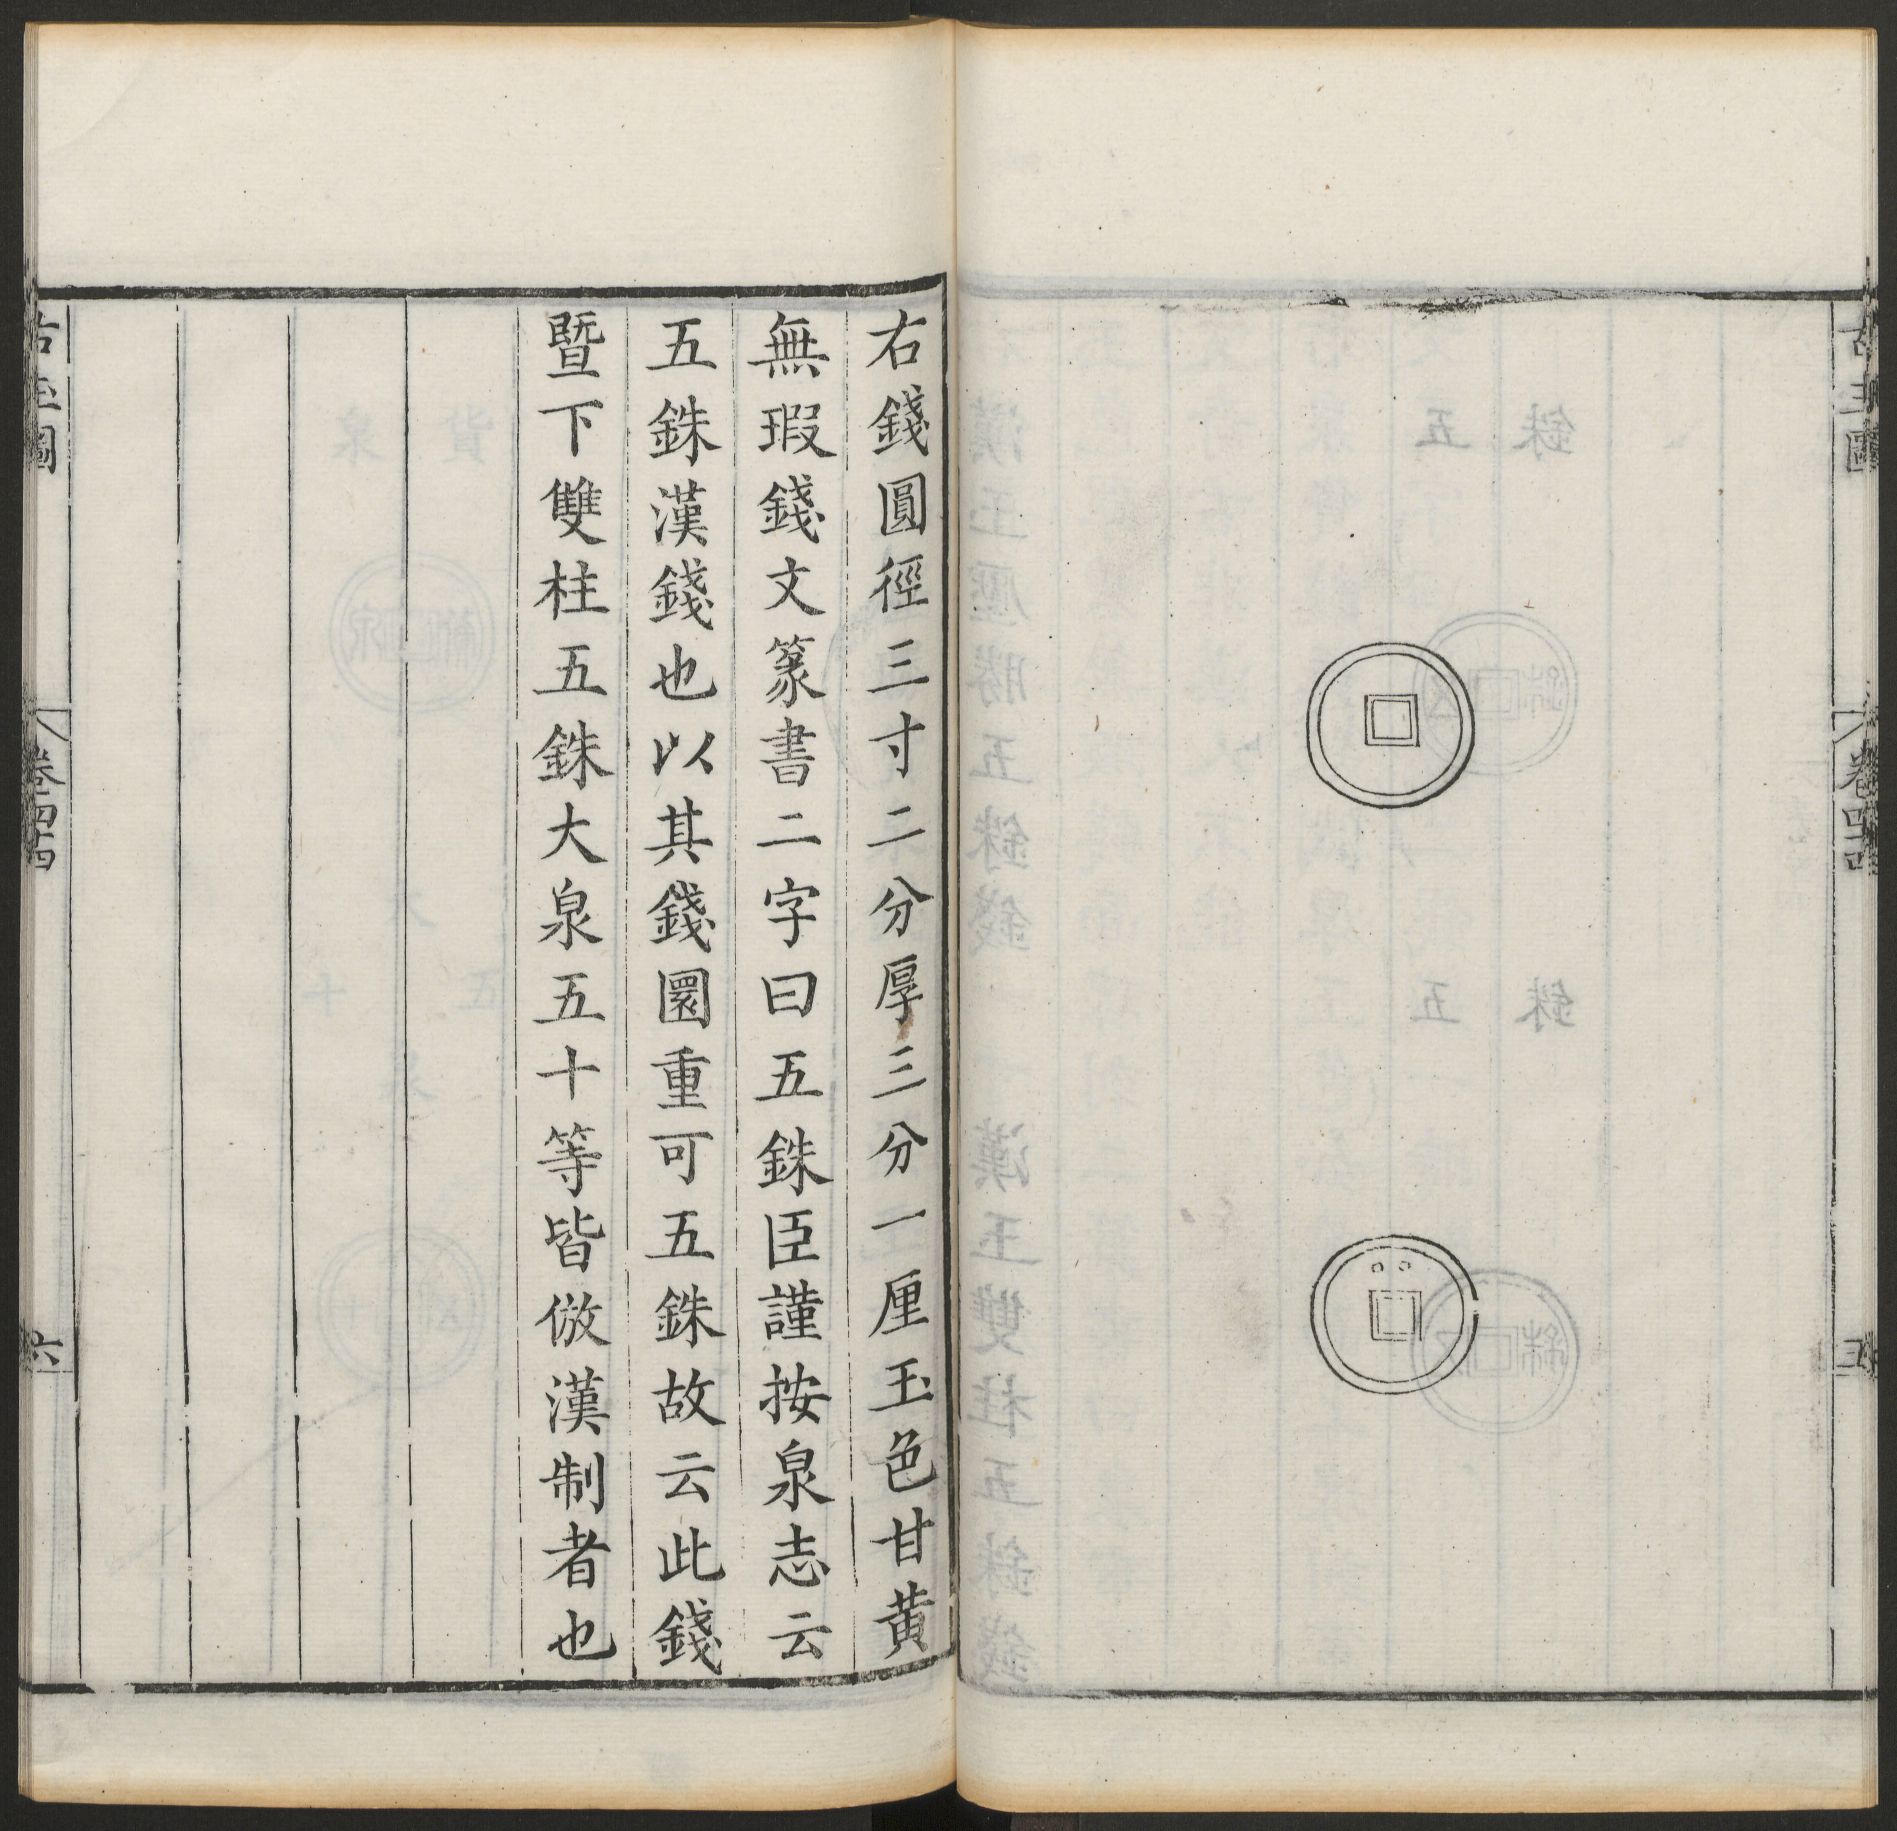 古玉圖
卷四十四
五
右錢圓徑三寸二分厚三分一厘玉色甘黃
無瑕錢文篆書二字曰五銖臣謹按泉志云
五銖漢錢也以其錢圜重可五銖故云此錢
暨下雙柱五銖大泉五十等皆倣漢制者也
古玉圖
卷四十四
六